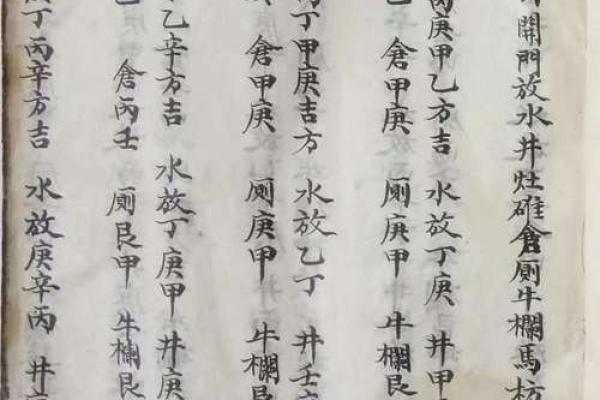 開門放水井灶碓倉厠牛欄馬枋
庚甲乙方吉 水放丁庚 井甲
倉甲庚 厠庚甲 牛欄艮
丁甲庚吉方 水放乙丁 井壬
倉甲庚 厠庚甲 牛欄艮
乙辛方吉 水放丁庚甲 井庚
倉丙壬 厠艮甲 牛欄艮
丁丙辛方吉 水放庚辛丙 井